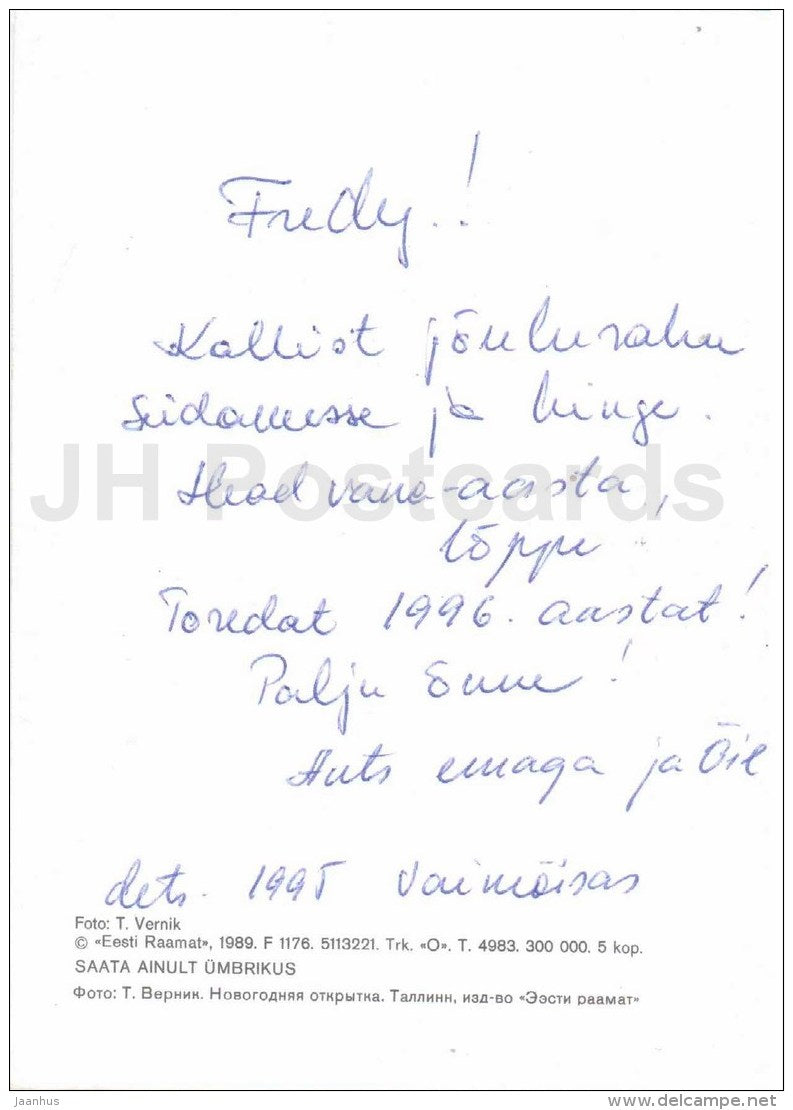 Fredy.!
Kallist jõulurahu
südamesse ja hinge.
Head vana-aasta
lõppu!
Toredat 1996. aastat!
Palju õnne!
Ants emaga ja Õie
dets. 1995 Vaimõisas
JH Postcards
Foto: T. Vernik
© «Eesti Raamat», 1989. F 1176. 5113221. Trk. «O». T. 4983. 300 000. 5 kop.
SAATA AINULT ÜMBRIKUS
Фото: Т. Верник. Новогодняя открытка. Таллинн, изд-во «Ээсти раамат»
Jaanhus
www.delcampe.net